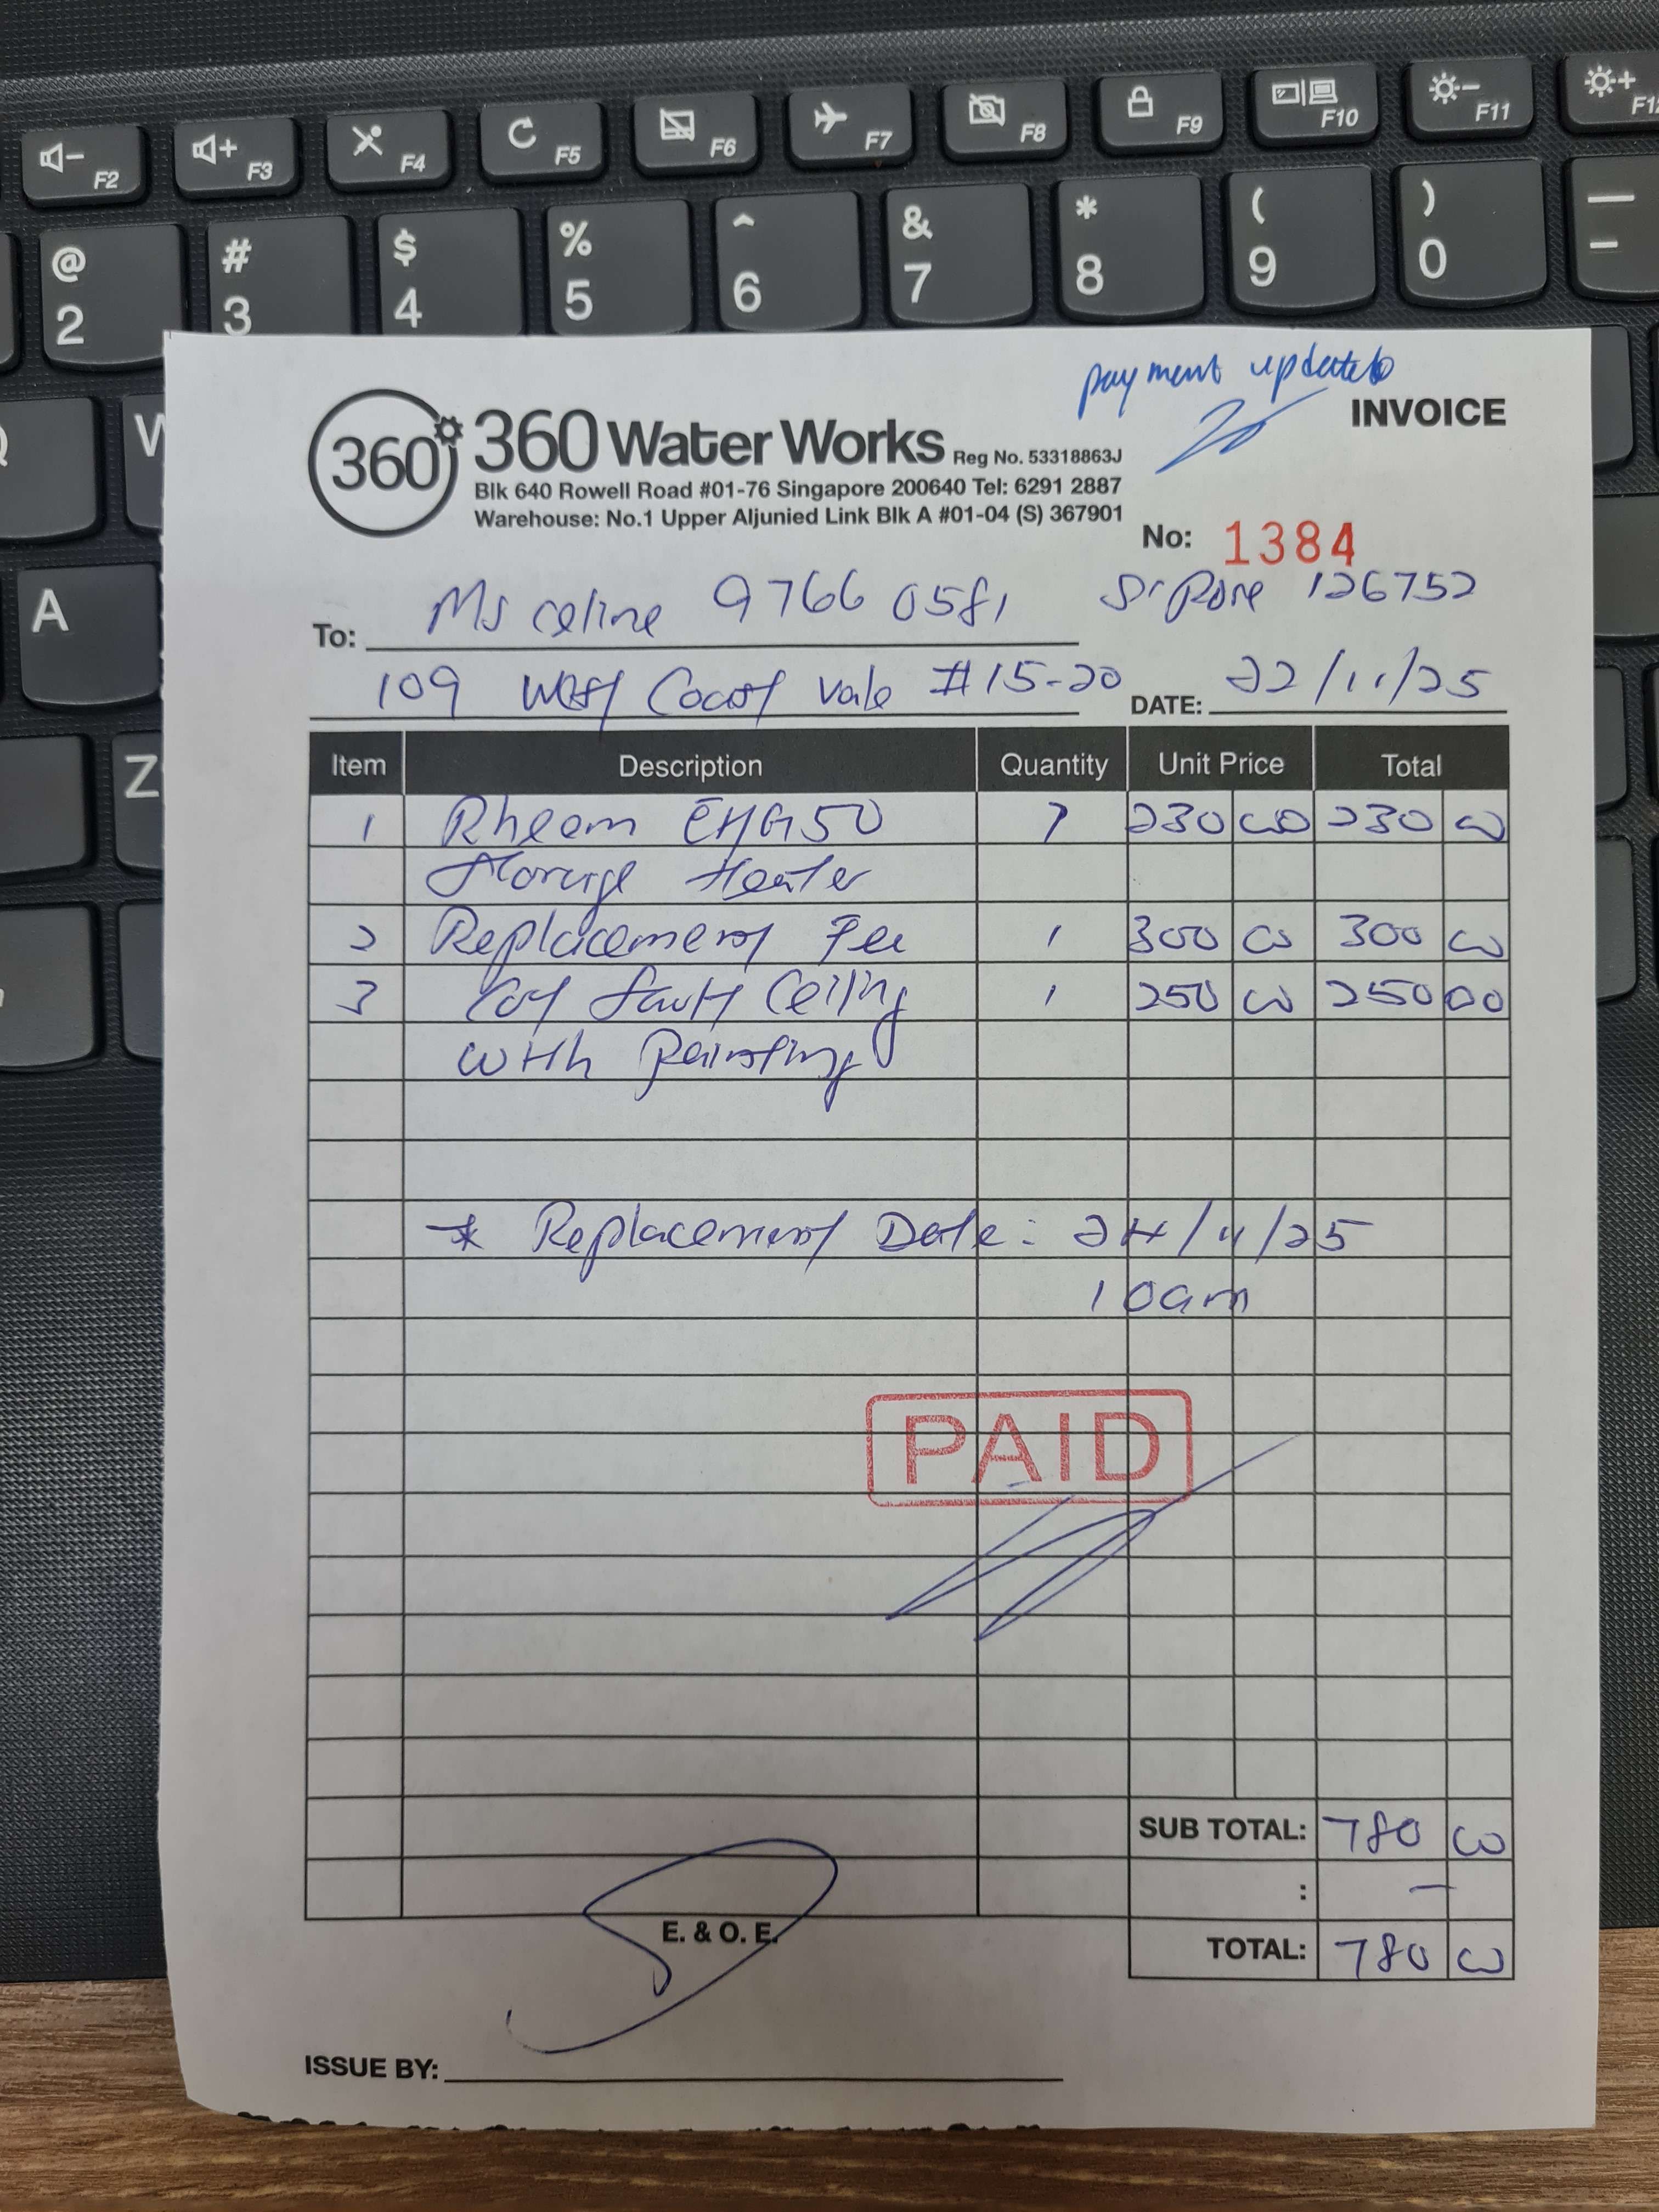 F2 F3 F4 F5 F6 F7 F8 F9 F10 F11 F12
@ # $ % ^ & * ( )
2 3 4 5 6 7 8 9 0
W
A
Z
payment updated
INVOICE
360° 360 Water Works Reg No. 53318863J
Blk 640 Rowell Road #01-76 Singapore 200640 Tel: 6291 2887
Warehouse: No.1 Upper Aljunied Link Blk A #01-04 (S) 367901
No: 1384
To: Ms Celine 9766 0581 S'pore 126752
109 West Coast Vale #15-20 DATE: 22/11/25
Item Description Quantity Unit Price Total
1 Rheem EHG50 1 230 00 230 00
Storage Heater
2 Replacement Fee 1 300 00 300 00
3 Ceiling 1 250 00 250 00
with Painting
* Replacement Date: 24/11/25
10am
PAID
SUB TOTAL: 780 00
: -
TOTAL: 780 00
E. & O. E.
ISSUE BY: